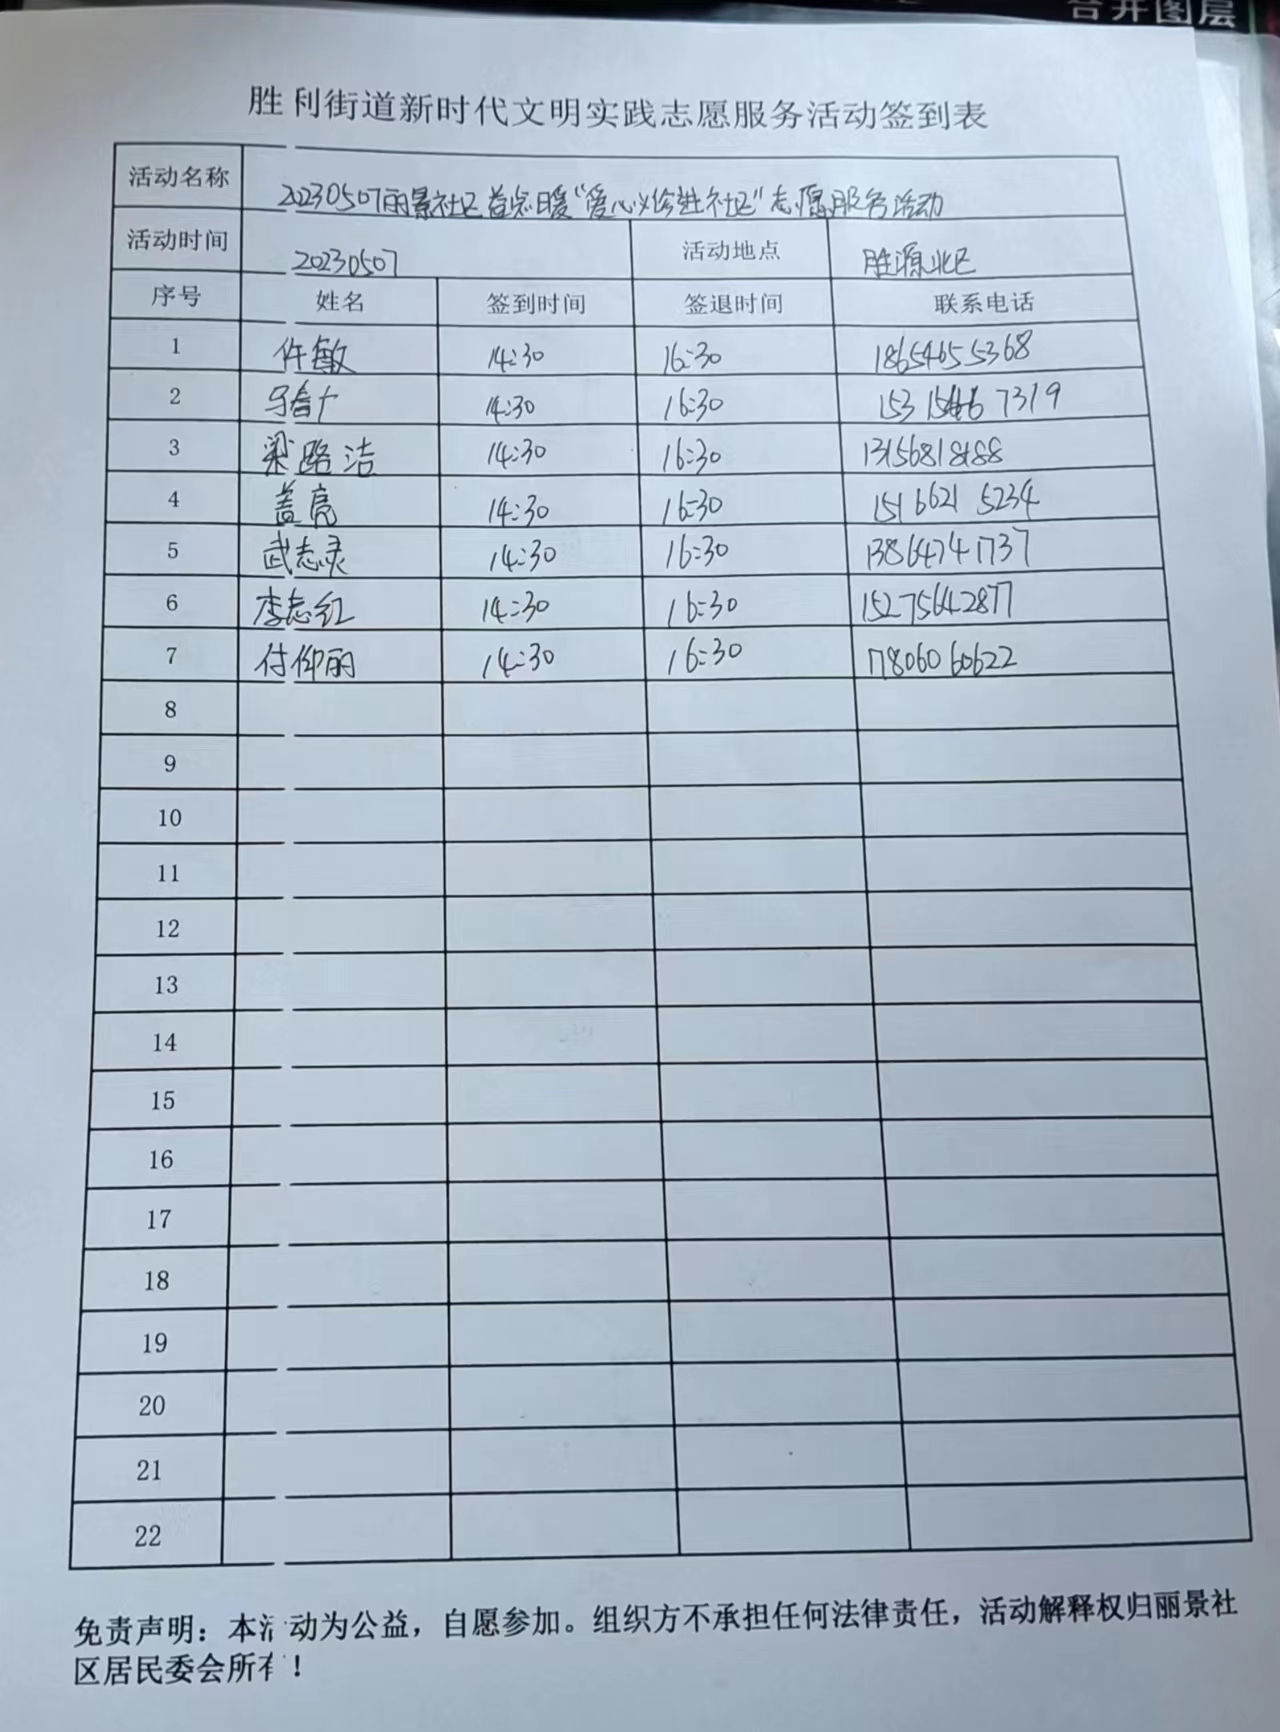 合并图层
胜利街道新时代文明实践志愿服务活动签到表
活动名称 20230507丽景社区益点暖"爱心义诊进社区"志愿服务活动
活动时间 20230507 活动地点 胜源北区
序号 姓名 签到时间 签退时间 联系电话
1 许敏 14:30 16:30 18654655368
2 14:30 16:30 7319
3 梁路洁 14:30 16:30 13156818188
4 盖亮 14:30 16:30 1516621 5234
5 武志灵 14:30 16:30 13864741737
6 李志红 14:30 16:30 15275642877
7 付仰丽 14:30 16:30 17806060622
8
9
10
11
12
13
14
15
16
17
18
19
20
21
22
免责声明：本活动为公益，自愿参加。组织方不承担任何法律责任，活动解释权归丽景社
区居民委会所有！